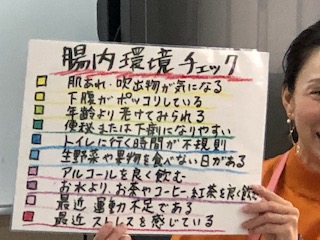 腸内環境チェック
肌あれ・吹出物が気になる
下腹がポッコリしている
年齢より老けてみられる
便秘または下痢になりやすい
トイレに行く時間が不規則
生野菜や果物を食べない日がある
アルコールを良く飲む
お水より、お茶やコーヒー紅茶を良く飲む
最近 運動不足である
最近 ストレスを感じている